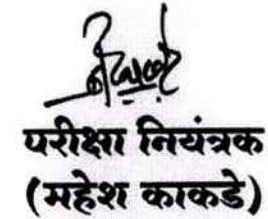 परीक्षा नियंत्रक
(महेश काकडे)